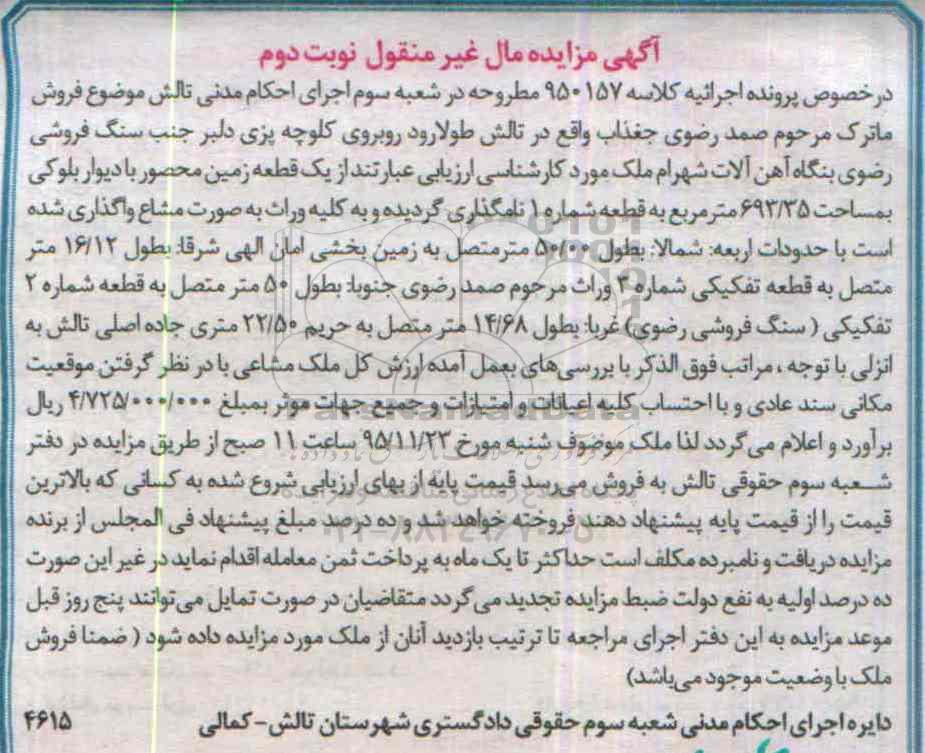 آگهی مزایده مال غیر منقول نوبت دوم
درخصوص پرونده اجرائیه کلاسه ۹۵۰۱۵۷ مطروحه در شعبه سوم اجرای احکام مدنی تالش موضوع فروش
ماترک مرحوم صمد رضوی جغذاب واقع در تالش طولارود روبروی کلوچه پزی دلبر جنب سنگ فروشی
رضوی بنگاه آهن آلات شهرام ملک مورد کارشناسی ارزیابی عبارتند از یک قطعه زمین محصور با دیوار بلوکی
بمساحت ۶۹۳/۳۵ مترمربع به قطعه شماره ۱ نامگذاری گردیده و به کلیه وراث به صورت مشاع واگذاری شده
است با حدودات اربعه: شمالا: بطول ۵۰/۰۰ مترمتصل به زمین بخشی امان الهی شرقا: بطول ۱۶/۱۲ متر
متصل به قطعه تفکیکی شماره ۳ وراث مرحوم صمد رضوی جنوبا: بطول ۵۰ متر متصل به قطعه شماره ۲
تفکیکی ( سنگ فروشی رضوی) غربا: بطول ۱۴/۶۸ متر متصل به حریم ۲۲/۵۰ متری جاده اصلی تالش به
انزلی با توجه ، مراتب فوق الذکر با بررسی‌های بعمل آمده ارزش کل ملک مشاعی با در نظر گرفتن موقعیت
مکانی سند عادی و با احتساب کلیه اعیانات و امتیازات و جمیع جهات موثر بمبلغ ۴/۷۲۵/۰۰۰/۰۰۰ ریال
برآورد و اعلام می‌گردد لذا ملک موضوف شنبه مورخ ۹۵/۱۱/۲۳ ساعت ۱۱ صبح از طریق مزایده در دفتر
شعبه سوم حقوقی تالش به فروش می‌رسد قیمت پایه از بهای ارزیابی شروع شده به کسانی که بالاترین
قیمت را از قیمت پایه پیشنهاد دهند فروخته خواهد شد و ده درصد مبلغ پیشنهاد فی المجلس از برنده
مزایده دریافت و نامبرده مکلف است حداکثر تا یک ماه به پرداخت ثمن معامله اقدام نماید در غیر این صورت
ده درصد اولیه به نفع دولت ضبط مزایده تجدید می‌گردد متقاضیان در صورت تمایل می‌توانند پنج روز قبل
موعد مزایده به این دفتر اجرای مراجعه تا ترتیب بازدید آنان از ملک مورد مزایده داده شود ( ضمنا فروش
ملک با وضعیت موجود می‌باشد)
دایره اجرای احکام مدنی شعبه سوم حقوقی دادگستری شهرستان تالش- کمالی ۴۶۱۵